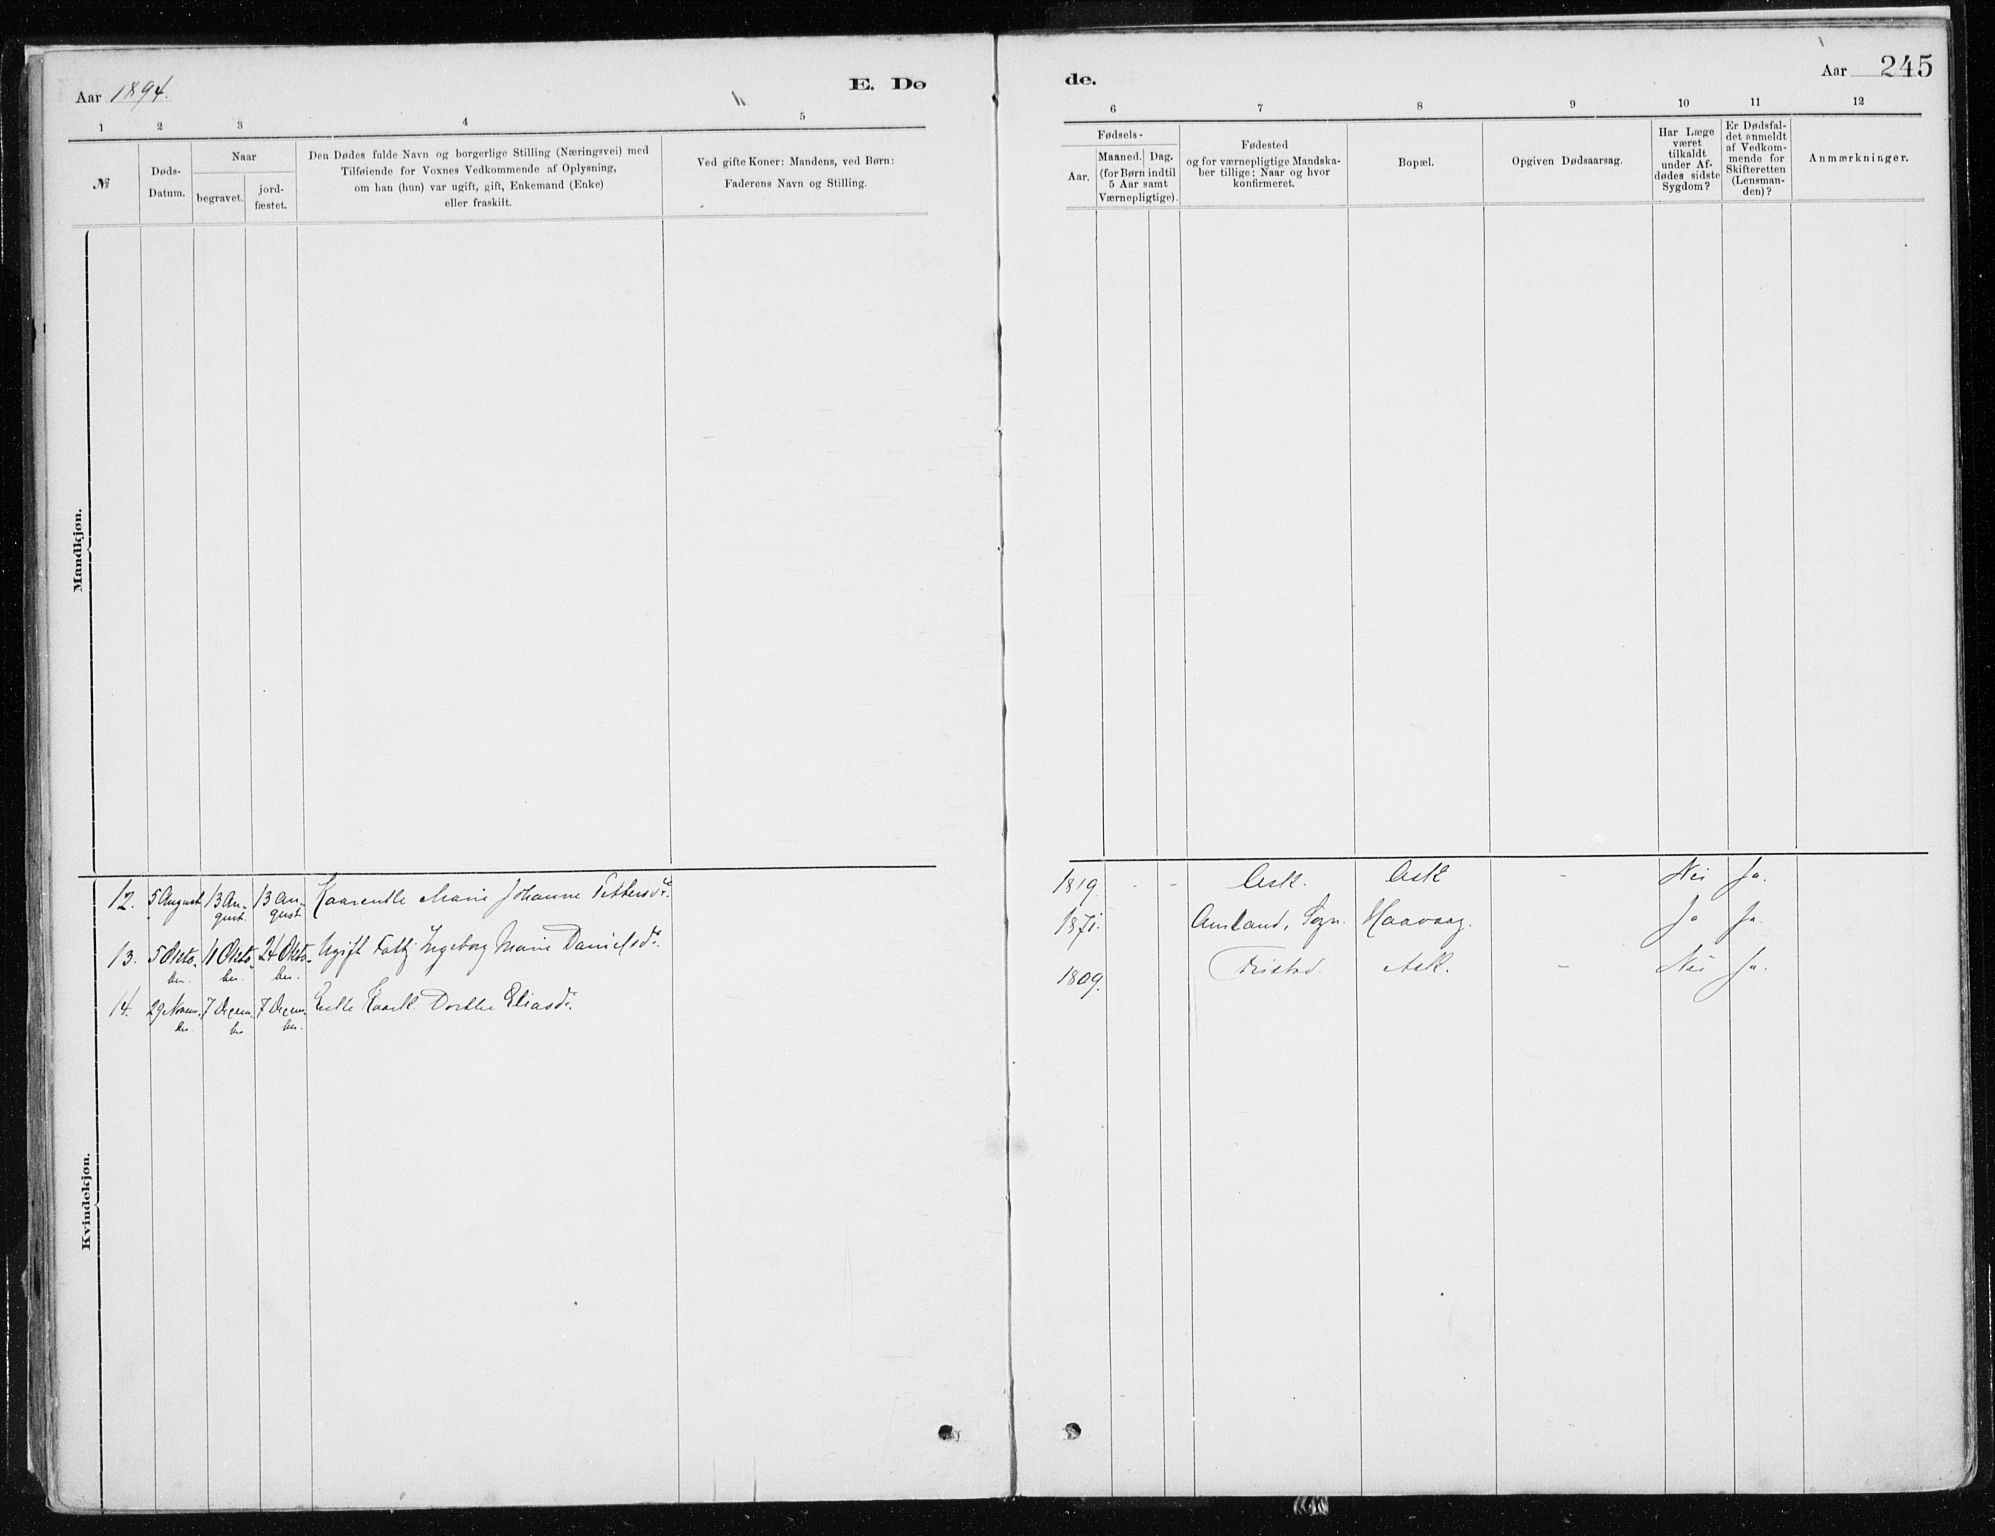 Aar 1894.
E. Dø
de.
Aar 245
1 2 3 4 5
6 7 8 9 10 11 12
№
Døds-
Datum.
Naar
begravet.
jord-
fæstet.
Den Dødes fulde Navn og borgerlige Stilling (Næringsvei) med
Tilføiende for Voxnes Vedkommende af Oplysning,
om han (hun) var ugift, gift, Enkemand (Enke)
eller fraskilt.
Ved gifte Koner: Mandens, ved Børn:
Faderens Navn og Stilling.
Fødsels-
Aar.
Maaned. Dag.
(for Børn indtil
5 Aar samt
Værnepligtige).
Fødested
og for værnepligtige Mandska-
ber tillige: Naar og hvor
konfirmeret.
Bopæl.
Opgiven Dødsaarsag.
Har Læge
været
tilkaldt
under Af-
dødes sidste
Sygdom?
Er Dødsfal-
det anmeldt
af Vedkom-
mende for
Skifteretten
(Lensman-
den)?
Anmærkninger.
Mandkjøn.
Kvindekjøn.
12. 5 August 13 Au- 13 Au- Kaarenke Marie Johanne Pettersdr.
gust. gust.
1819. - - Ask. Ask - Nei Ja.
13. 5 Okto- 11 Okto- 24 Okto- Ugift Fattig Ingeborg Marie Danielsdr.
ber. ber. ber.
1871. Amland, Sogn. Haavaag. Ja Ja.
14. 29 Novem- 7 Decem- 7 Decem- Enke Kaark. Dorthe Eliasdr.
ber. ber ber.
1809. Ask. - Nei Ja.